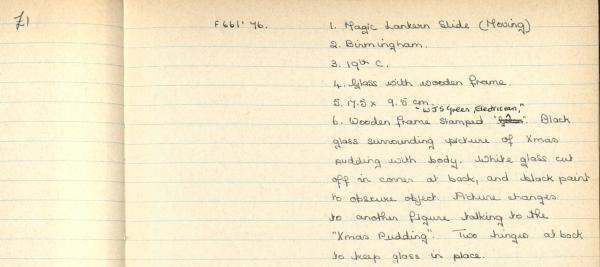 £1
F661'76.
1. Magic Lantern Slide (Moving)
2. Birmingham.
3. 19th C.
4. Glass with wooden frame.
5. 17.5 x 9.5 cm.
"WJS Green, Electrician,"
6. Wooden frame stamped. Black
glass surrounding picture of Xmas
pudding with body. White glass cut
off in corner at back, and black paint
to obscure object. Picture changes
to another figure talking to the
"Xmas Pudding". Two hinges at back
to keep glass in place.